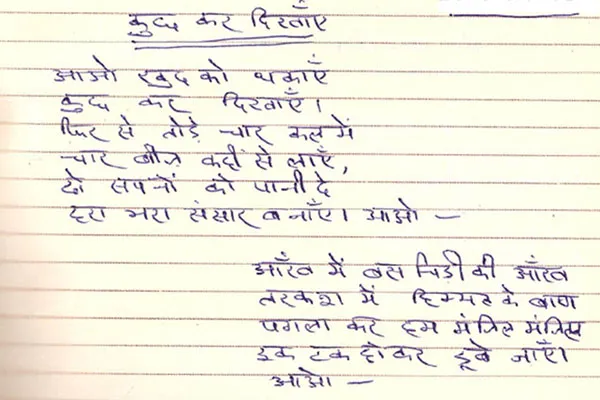 कुछ कर दिखाएँ
आओ खुद को थकाएँ
कुछ कर दिखाएँ।
फिर से तोड़े चार कलमें
चार बीज कहीं से लाएँ,
दो सपनों को पानी दे
हरा भरा संसार बनाएँ। आओ —
आँख में बस चिड़ी की आँख
तरकश में हिम्मत के बाण
पगला कर हम मंज़िल मंज़िल
इक टक होकर डूबे जाएँ।
आओ —